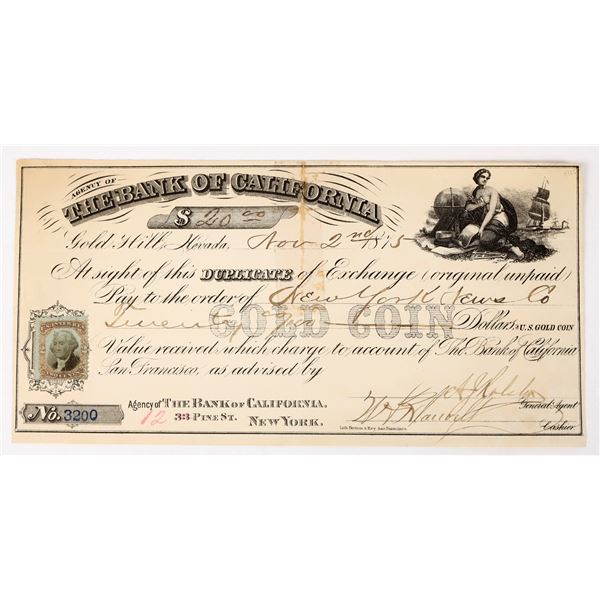 AGENCY OF
THE BANK OF CALIFORNIA
$ 20.00
Gold Hill, Nevada, Nov 2nd 1875
At sight of this DUPLICATE of Exchange (original unpaid)
Pay to the order of New York News Co
Twenty Dollars U.S. GOLD COIN
GOLD COIN
Value received, which charge to account of The Bank of California
San Francisco, as advised by
No. 3200
Agency of THE BANK OF CALIFORNIA.
12 33 PINE ST. NEW YORK.
General Agent
Cashier.